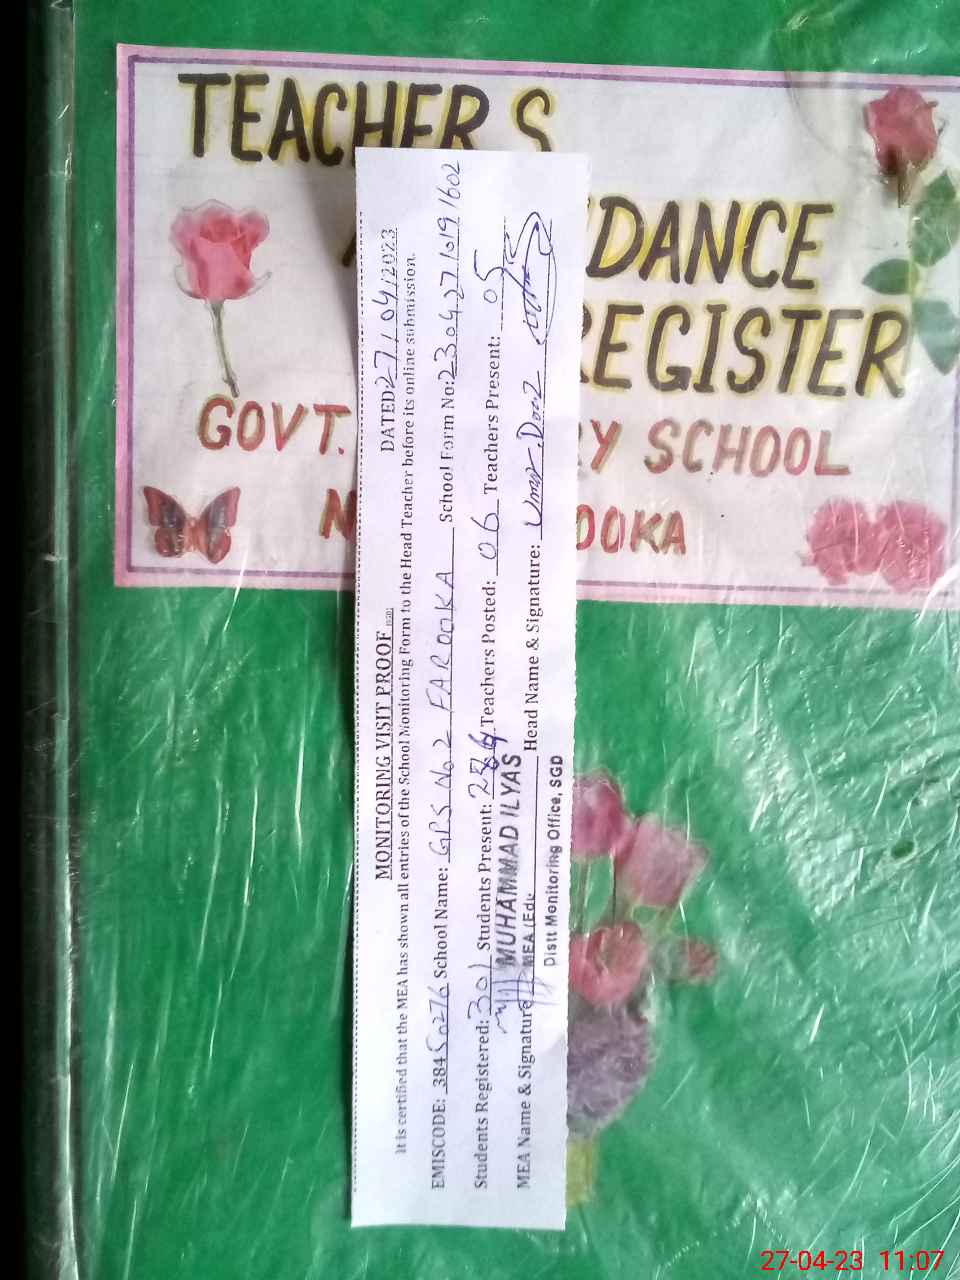 TEACHER S
DANCE
REGISTER
GOVT. RY SCHOOL
N OOKA
MONITORING VISIT PROOF
DATED 27/04/2023
It is certified that the MEA has shown all entries of the School Monitoring Form to the Head Teacher before its online submission.
EMISCODE: 38450276 School Name: GPS No.2 FAROOKA School Form No: 23042710191602
Students Registered: 301 Students Present: Teachers Posted: 06 Teachers Present: 05
MEA Name & Signature Head Name & Signature:
MUHAMMAD ILYAS
MEA (Edu
Distt Monitoring Office, SGD
27-04-23 11:07